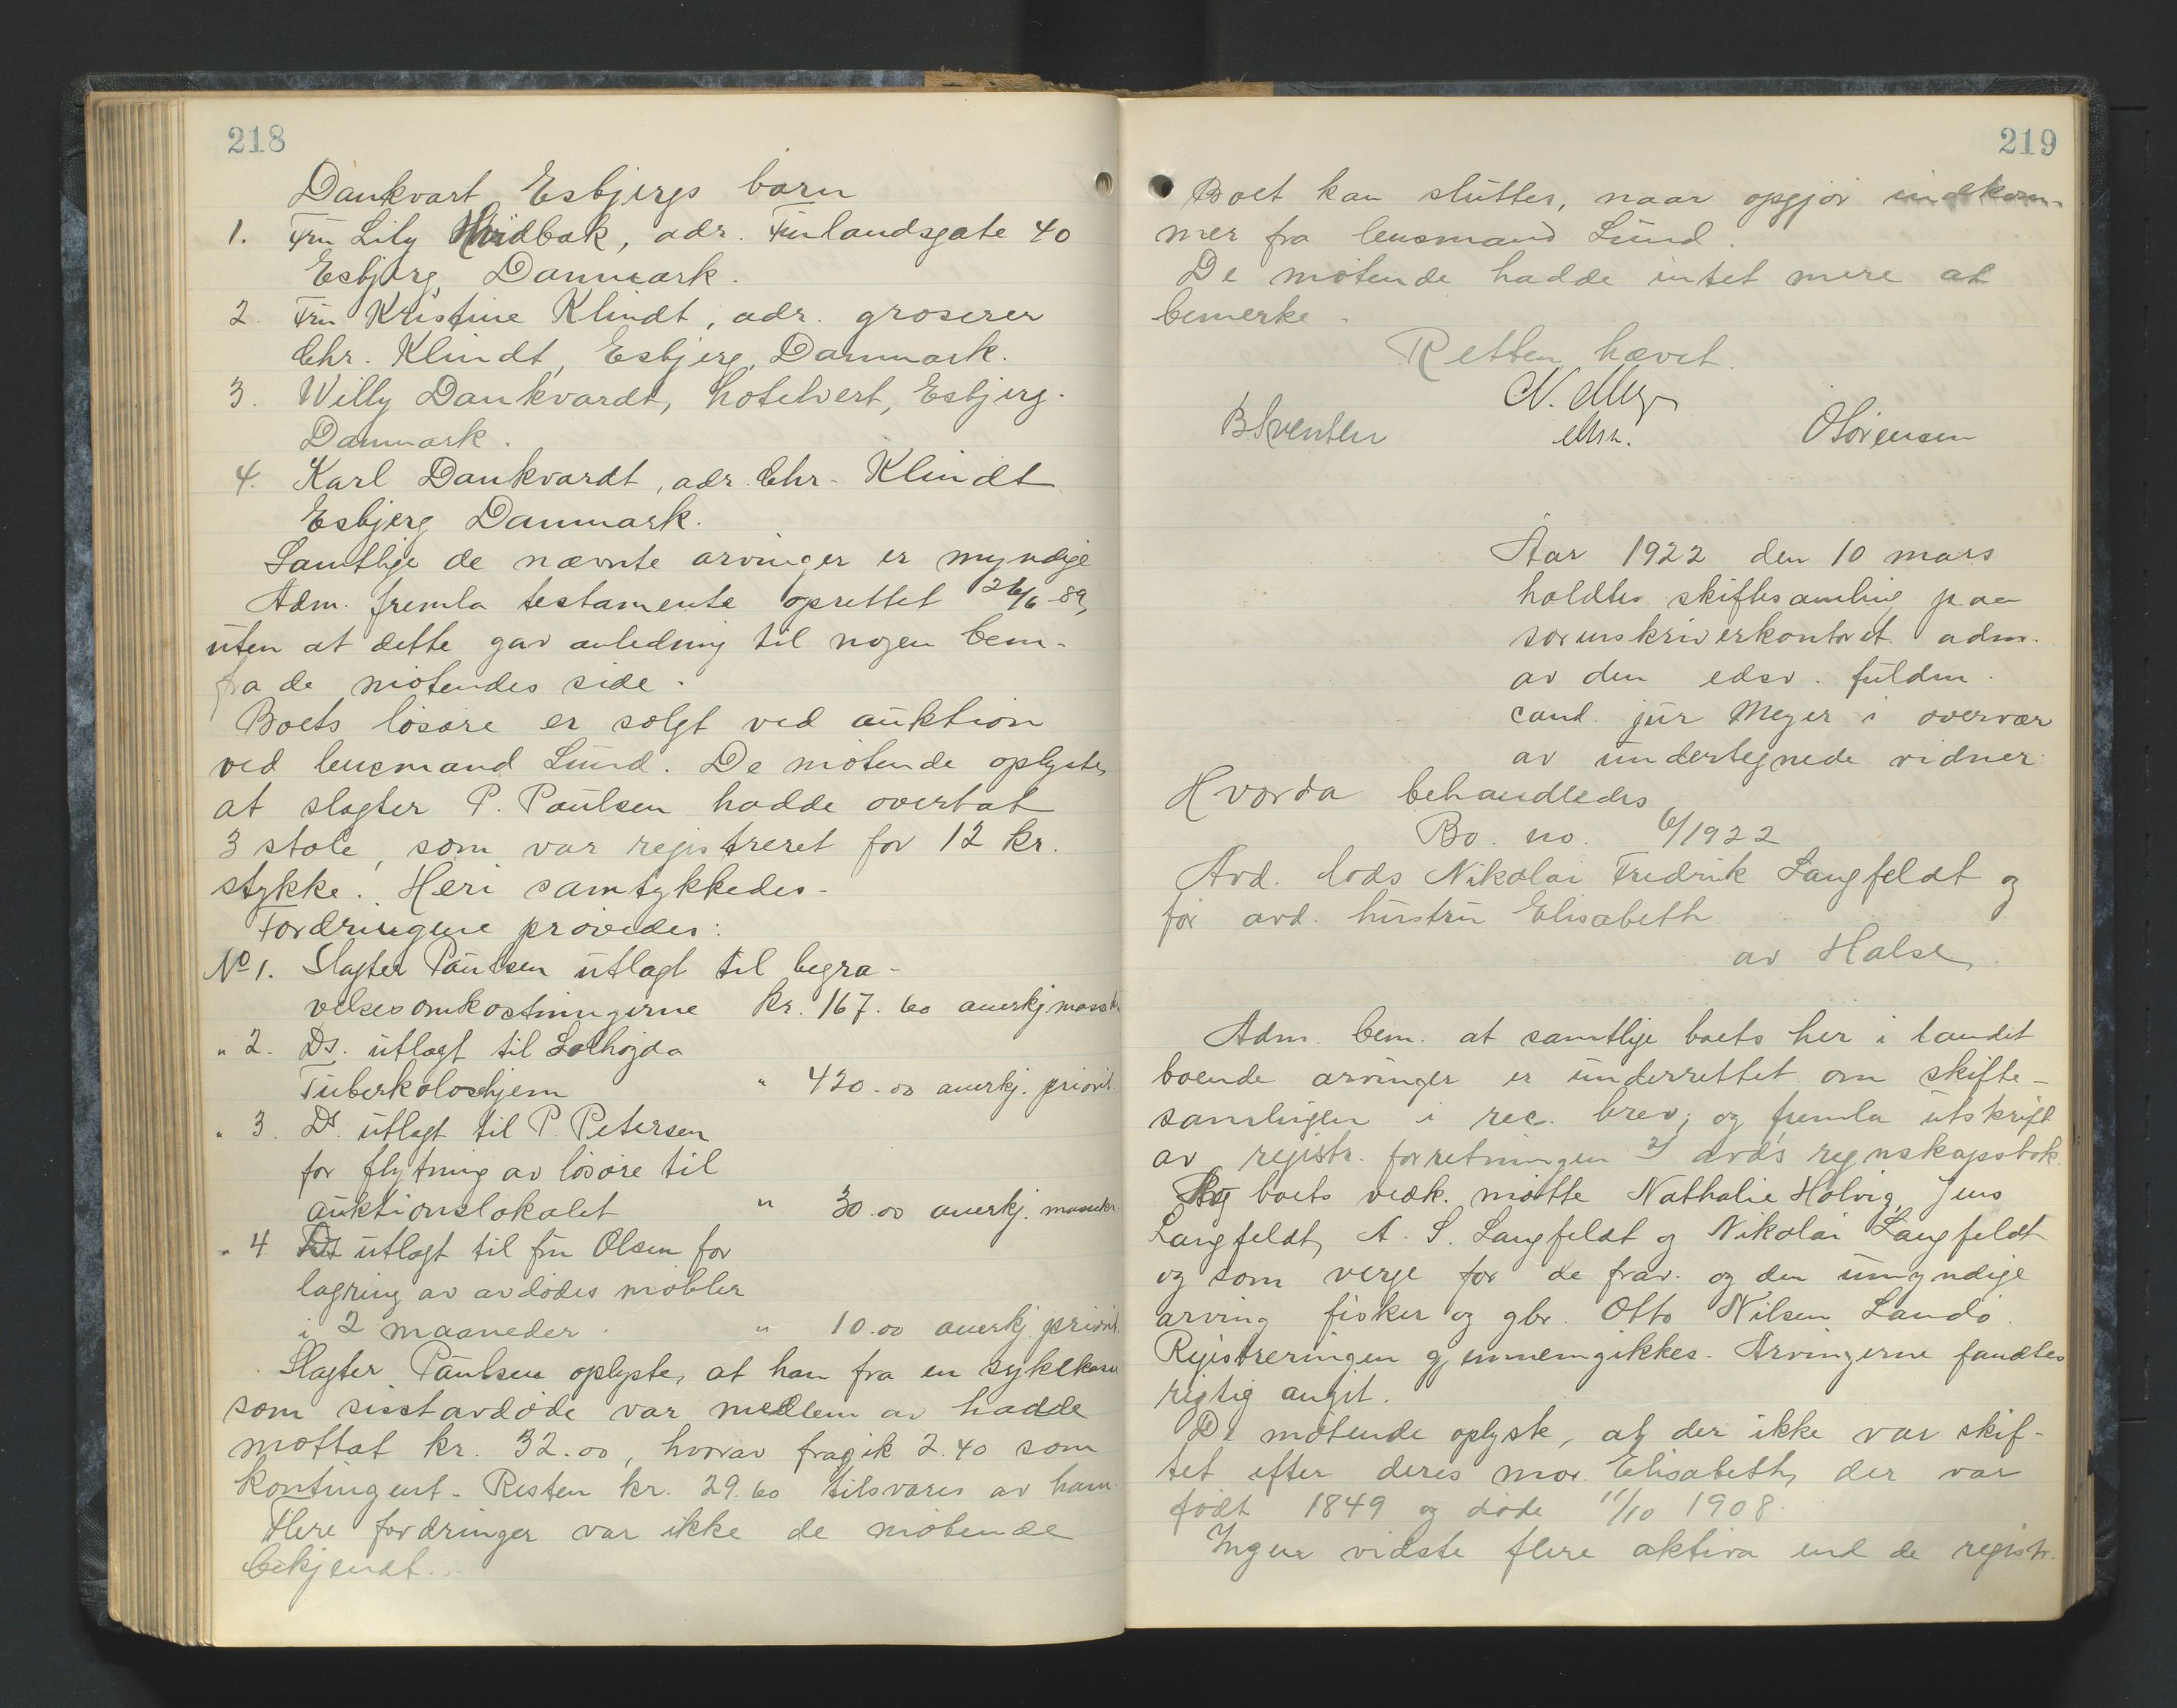 218
Dankvart Esbjergs barn
1. Fru Lily Hvidbak, adr. Finlandsgate 40
Esbjerg, Danmark.
2. Fru Kristine Klindt, adr. groserer
Chr. Klindt, Esbjerg, Danmark.
3. Willy Dankvardt, hotelvert, Esbjerg.
Danmark.
4. Karl Dankvardt, adr. Chr. Klindt
Esbjerg Danmark.
Samtlige de nævnte arvinger er myndige
Adm. fremla testamente oprettet 26/6-89,
uten at dette gav anledning til nogen bem.
fra de møtendes side.
Boets løsøre er solgt ved auktion
ved lensmand Lund. De møtende oplyste,
at slagter P. Paulsen hadde overtat
3 stole, som var registreret for 12 kr.
stykke. Heri samtykkedes.
Fordringene prøvedes:
No 1. Slagter Paulsen utlagt til begra-
velsesomkostningerne kr. 167.60 anerkj massekr
" 2. Ds. utlagt til Solhøgda
Tuberkoloschjem " 420.00 anerkj. priorit.
" 3. Ds. utlagt til P. Petersen
for flytning av løsøre til
auktionslokalet " 30.00 anerkj. massekr.
" 4. Ds utlagt til fru Olsen for
lagring av avdødes møbler
i 2 maaneder. " 10.00 anerkj. priorit.
Slagter Paulsen oplyste, at han fra en sykekasse
som sisstavdøde var medlem av hadde
mottat kr. 32.00, hvorav fragik 2.40 som
kontingent. Resten kr. 29.60 tilsvares av ham.
Flere fordringer var ikke de møtende
bekjendt.
219
Boet kan sluttes, naar opgjør indkom-
mer fra lensmand Lund.
De møtende hadde intet mere at
bemerke.
Retten hævet.
N. Meyer
B. Sventsen O Sørensen
Aar 1922 den 10 mars
holdtes skiftesamling paa
sorenskriverkontoret adm.
av den edsv. fuldm.
cand. jur Meyer i overvær
av undertegnede vidner:
Hvorda behandledes
Bo. no. 6/1922
Avd. lods Nikolai Fredrik Langfeldt og
før avd. hustru Elisabeth
av Halse.
Adm. bem. at samtlige boets her i landet
boende arvinger er underrettet om skifte-
samlingen i rec. brev, og fremla utskrift
av registr. forretningen 2) avd's regnskapsbok.
Paa boets vedk. møtte Nathalie Holvig, Jens
Langfeldt, A. S. Langfeldt og Nikolai Langfeldt
og som verge for de frav. og den umyndige
arving fisker og gbr. Otto Nilsen Landø.
Registreringen gjennemgikkes. Arvingerne fandtes
rigtig angit.
De møtende oplyste, at der ikke var skif-
tet efter deres mor Elisabeth, der var
født 1849 og døde 11/10 1908.
Ingen vidste flere aktiva end de registr.